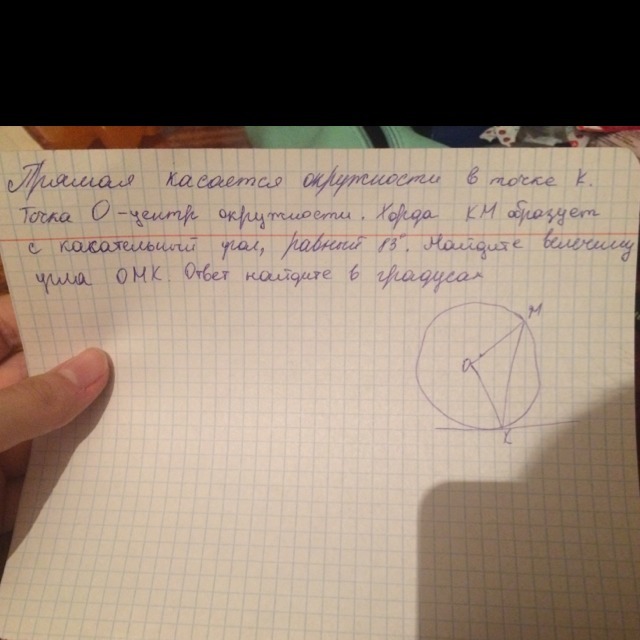 Прямая касается окружности в точке К.
Точка О-центр окружности. Хорда КМ образует
с касательный угол, равный 83°. Найдите величину
угла ОМК. Ответ найдите в градусах
М
О
К